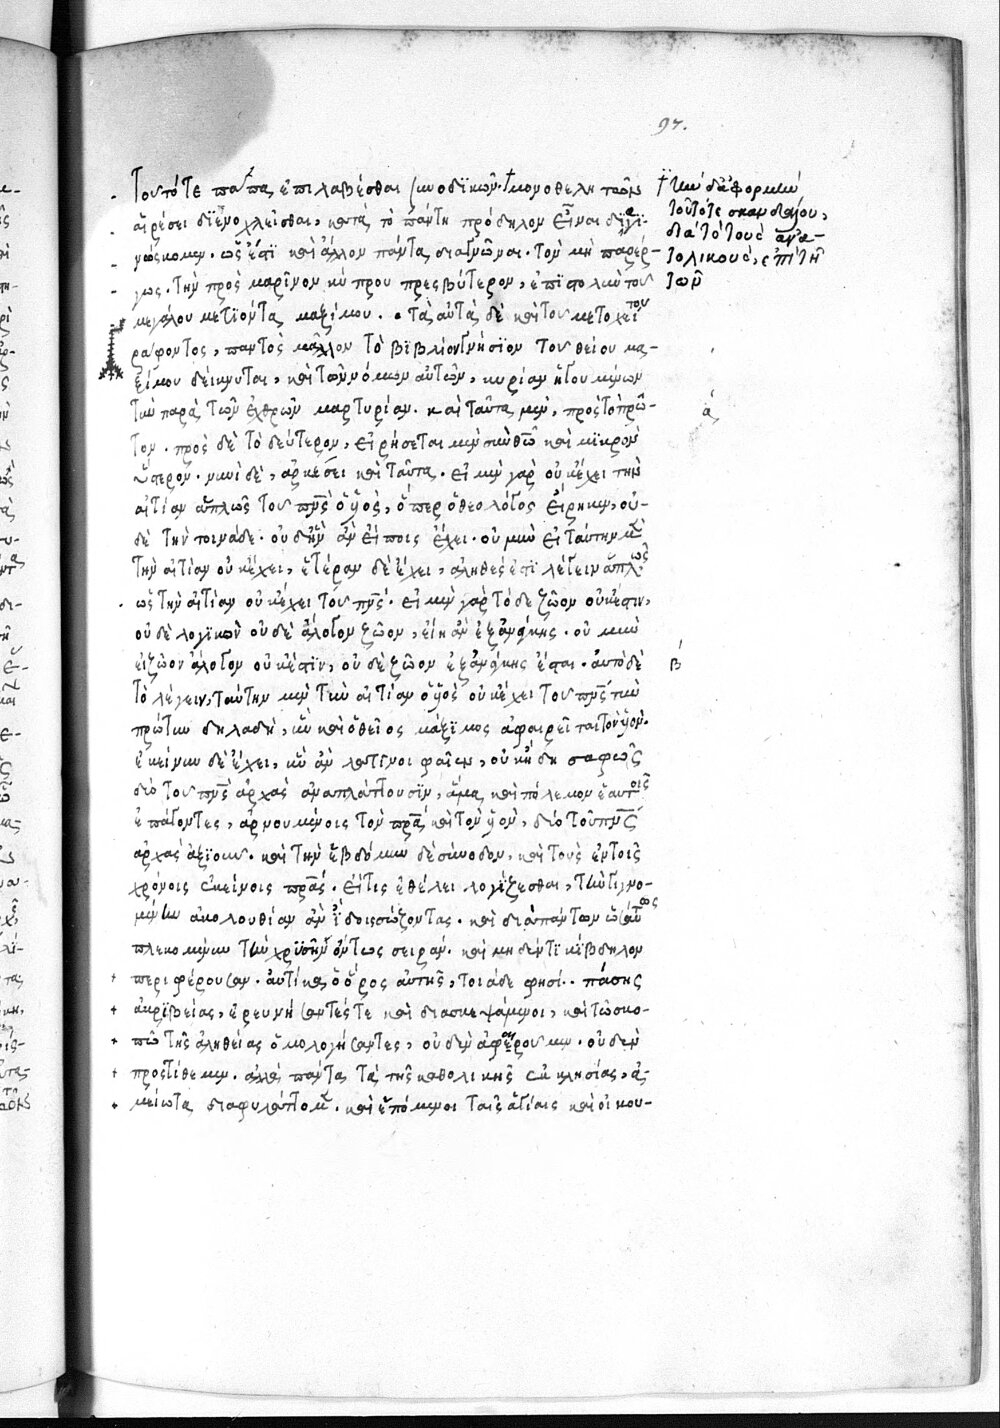 97.
τοῦ τότε πάππα ἐπιλαβέσθαι συνοδικῶν. † μονοθελητῶν
αἱρέσει διενοχλεῖσθαι, κατὰ τὸ πάντη πρόδηλον εἶναι
γινώσκομεν. ὡς ἔστι καὶ ἄλλον πάντα διαγνῶναι. τὸν μὴ παρέρ-
γως. τὴν πρὸς μαρῖνον κύπρου πρεσβύτερον, ἐπιστολὴν τοῦ
μεγάλου μετϊόντα μαξίμου. τὰ αὐτὰ δὲ καὶ τοῦ μετοχείτου
γράφοντος, παντὸς μᾶλλον τὸ βϊβλίον γνήσϊον τοῦ θείου μα-
ξίμου δείκνυται, καὶ τῶν νόμων αὐτῶν, κυρίαν ἡγουμένων
τὴν παρὰ τῶν ἐχθρῶν μαρτυρίαν. καὶ ταῦτα μὲν, πρὸς τὸ πρῶ-
τον. πρὸς δὲ τὸ δεύτερον, εἰρήσεται μὲν κἀνθῶ καὶ μϊκρὸν
ὕστερον. νυνὶ δὲ, ἀρκέσει καὶ ταῦτα. εἰ μὲν γὰρ οὐκ ἔχει τὴν
αἰτίαν ἁπλῶς τοῦ πνς ὁ υἱὸς, ὅπερ ὁ θεολόγος εἴρηκεν, οὐ-
δὲ τὴν ποιάνδε. οὐδ' ἣν ἂν εἴποις ἔχει. οὐ μὴν εἰ ταύτην μὲν
τὴν αἰτίαν οὐκ ἔχει, ἑτέραν δὲ ἔχει, ἀληθές ἐστι λέγειν ἁπλῶς
ὡς τὴν αἰτίαν οὐκ ἔχει τοῦ πνς. εἰ μὲν γὰρ τόδε ζῶον οὐκ ἔστιν,
οὐδὲ λογϊκὸν οὐδὲ ἄλογον ζῶον, εἴη ἂν ἐξανάγκης. οὐ μὴν
εἰ ζῶον ἄλογον οὐκ ἔστϊν, οὐδὲ ζῶον ἐξανάγκης ἔσται. αὐτὸ δὲ
τὸ λέγειν, ταύτην μὲν τὴν αἰτίαν ὁ υἱὸς οὐκ ἔχει τοῦ πνς τὴν
πρώτην δηλαδὴ, ἣν καὶ ὁ θεῖος μάξϊμος ἀφαιρεῖται τὸν υἱόν.
ἐκείνην δὲ ἔχει, ἣν ἂν λατῖνοι φαῖεν, οὐκ ἤδη σαφῶς
δύο τοῦ πνς ἀρχὰς ἀναπλάττουσϊν, ἅμα καὶ πόλεμον ἑαυτοῖς
ἐπάγοντες, ἀρνουμένοις τὸν πρα καὶ τὸν υἱὸν, δύο τοῦ πνς
ἀρχὰς ἀξϊοῦν. καὶ τὴν ἑβδόμην δὲ σύνοδον, καὶ τοὺς ἐν τοῖς
χρόνοις ἐκείνοις πρας. εἴτις ἐθέλει λογίζεσθαι, τὴν γιγνο-
μένην ἀκολουθίαν ἂν ἴδοι σώζοντας. καὶ διαπάντων ὡσαύτως
πλεκομένην τὴν χρυσῆν ὄντως σειράν. καὶ μηδέν τι κίβδηλον
περιφέρουσαν. αὐτίκα ὁ ὅρος αὐτῆς, τοιάδε φησί. πάσης
ἀκρϊβείας, ἐρευνήσαντές τε καὶ διασκεψάμενοι, καὶ τῶ σκο-
πῶ τῆς ἀληθείας ὁμολογήσαντες, οὐδὲν ἀφαιροῦμεν. οὐδὲν
προστίθεμεν. ἀλλὰ πάντα τὰ τῆς καθολικῆς ἐκκλησίας, ἀ-
μείωτα διαφυλάττομεν. καὶ ἑπόμενοι ταῖς ἁγίαις καὶ οἰκου-
† τὴν δ' ἀφορμὴν
τοῦ τότε σκανδάλου,
διὰ τὸ τοὺς ἀνα-
τολικοὺς, ἐπὶ τῆ
τῶν
ά
β